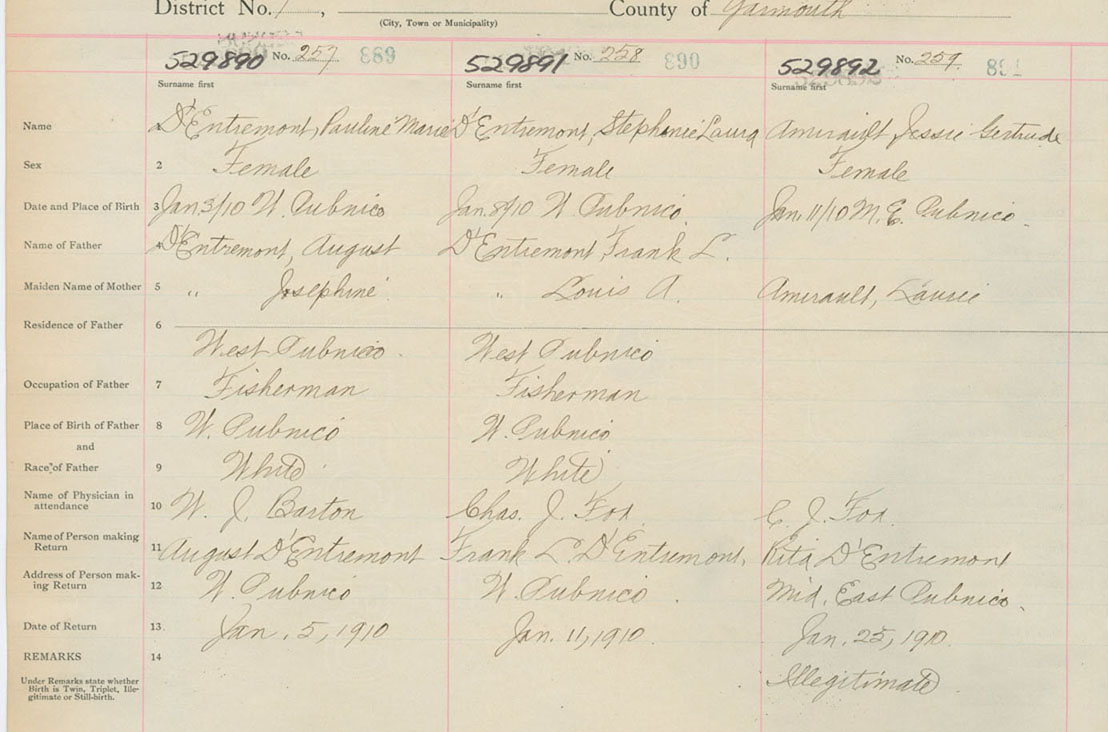 District No. 1, County of Yarmouth
(City, Town or Municipality)
529890 No. 257 889 529891 No. 258 890 529892 No. 259 891
Surname first Surname first Surname first
Name D'Entremont, Pauline Marie D'Entremont, Stephanie Laura Amirault, Jessie Gertrude
Sex 2 Female Female Female
Date and Place of Birth 3 Jan 3/10 W. Pubnico Jan. 8/10 W Pubnico. Jan. 11/10 M. E. Pubnico
Name of Father 4 D'Entremont, August D'Entremont, Frank L.
Maiden Name of Mother 5 " Josephine " Louis A. Amirault, Laurie
Residence of Father 6
West Pubnico West Pubnico
Occupation of Father 7 Fisherman Fisherman
Place of Birth of Father 8 W. Pubnico W. Pubnico
and
Race of Father 9 White White
Name of Physician in
attendance 10 W. J. Barton Chas. J. Fox C. J. Fox
Name of Person making
Return 11 August D'Entremont Frank L. D'Entremont, Rita D'Entremont
Address of Person mak-
ing Return 12 W. Pubnico W. Pubnico Mid. East Pubnico
Date of Return 13. Jan. 5, 1910 Jan. 11, 1910 Jan. 25, 1910
REMARKS 14
Under Remarks state whether
Birth is Twin, Triplet, Ille-
gitimate or Still-birth.
Illegitimate